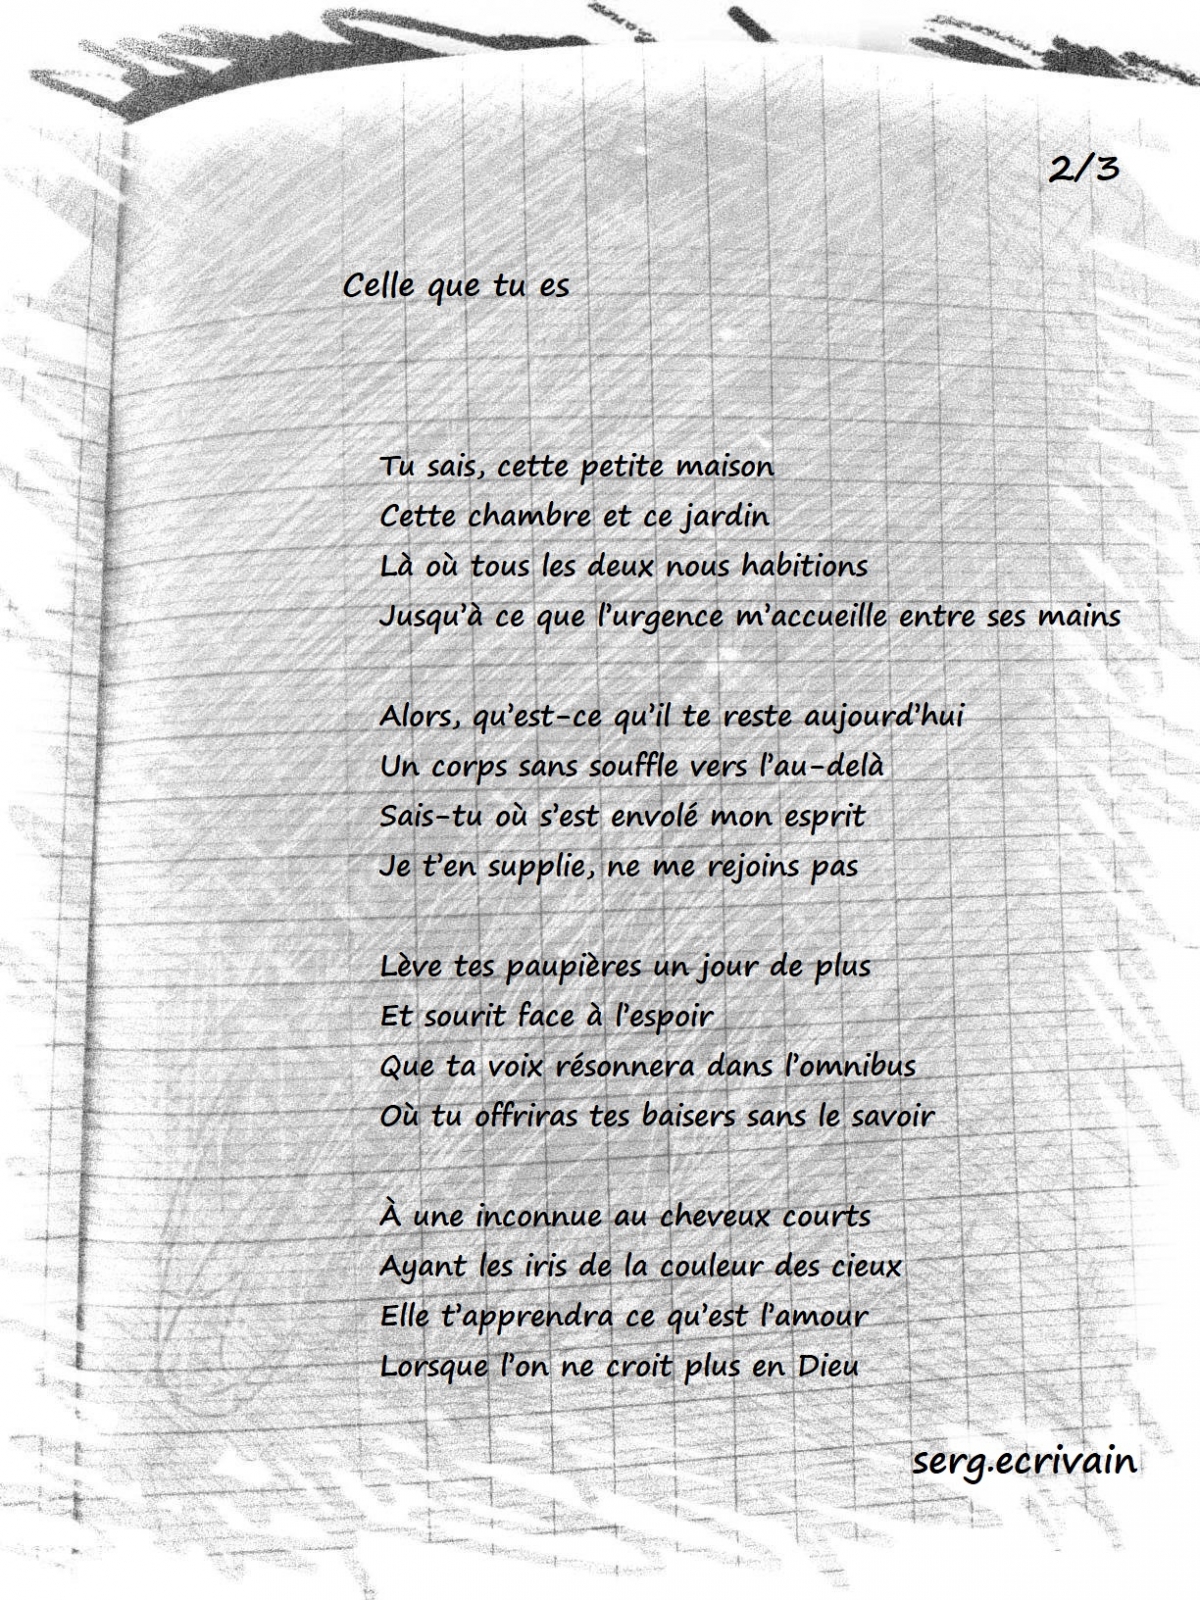 2/3
Celle que tu es
Tu sais, cette petite maison
Cette chambre et ce jardin
Là où tous les deux nous habitions
Jusqu’à ce que l’urgence m’accueille entre ses mains
Alors, qu’est-ce qu’il te reste aujourd’hui
Un corps sans souffle vers l’au-delà
Sais-tu où s’est envolé mon esprit
Je t’en supplie, ne me rejoins pas
Lève tes paupières un jour de plus
Et sourit face à l’espoir
Que ta voix résonnera dans l’omnibus
Où tu offriras tes baisers sans le savoir
À une inconnue au cheveux courts
Ayant les iris de la couleur des cieux
Elle t’apprendra ce qu’est l’amour
Lorsque l’on ne croit plus en Dieu
serg.ecrivain